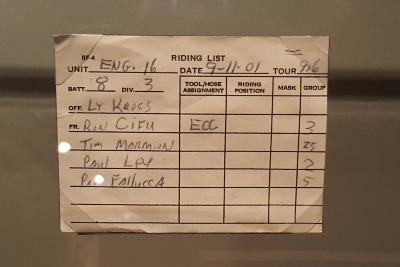 BF-4 RIDING LIST
UNIT ENG. 16 DATE 9-11-01 TOUR 9x6
BATT. 8 DIV. 3 TOOL/HOSE ASSIGNMENT RIDING POSITION MASK GROUP
OFF. LT KROSS
FR. RON CIFU ECC 3
TIM MARMION 25
PAUL LEE 2
PAT FALLUCCA 5